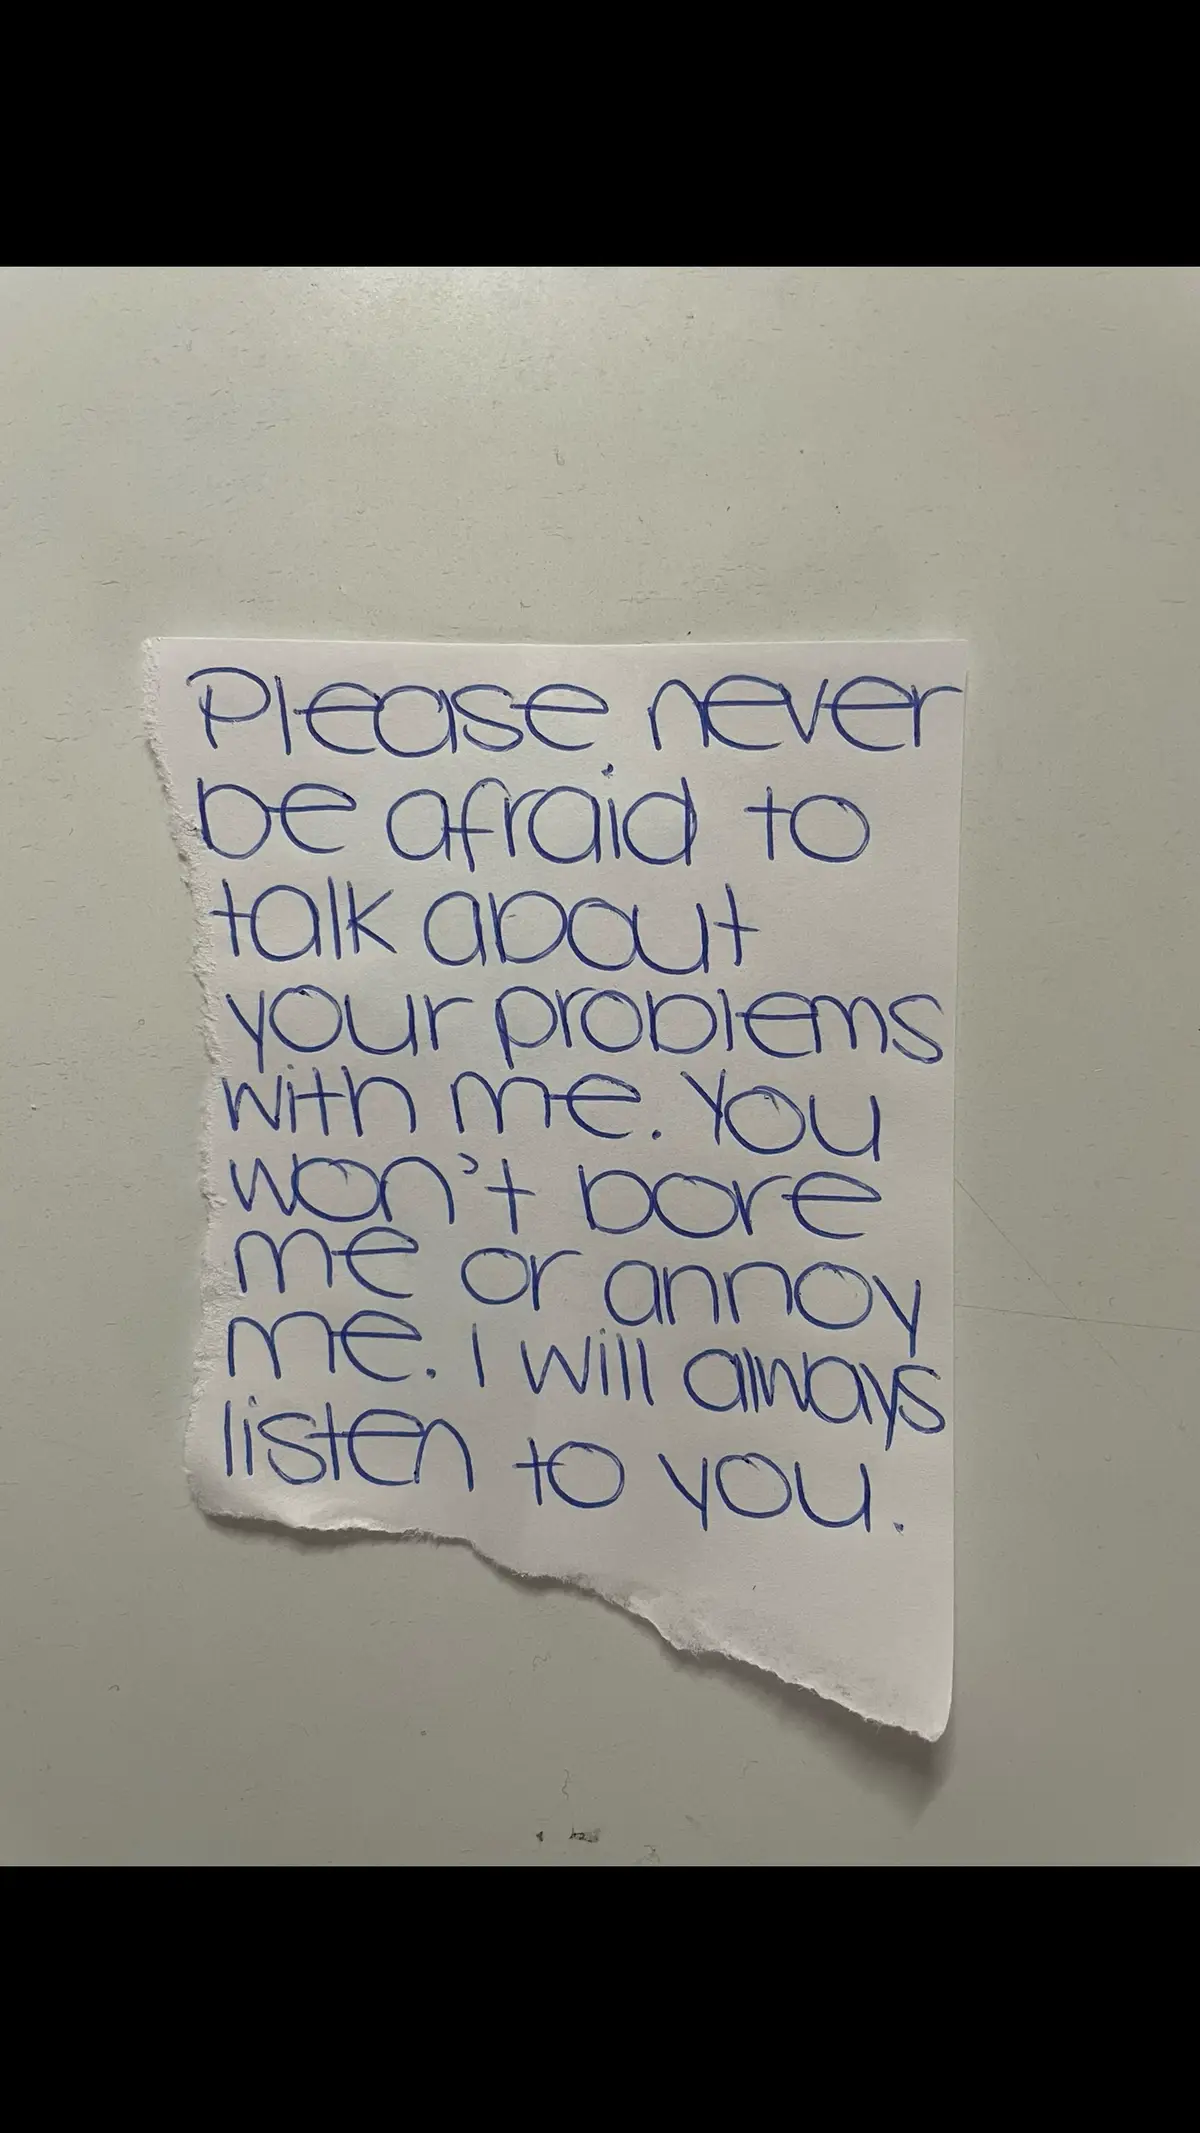 Please never
be afraid to
talk about
your problems
with me. You
won't bore
me or annoy
me. I will always
listen to you.